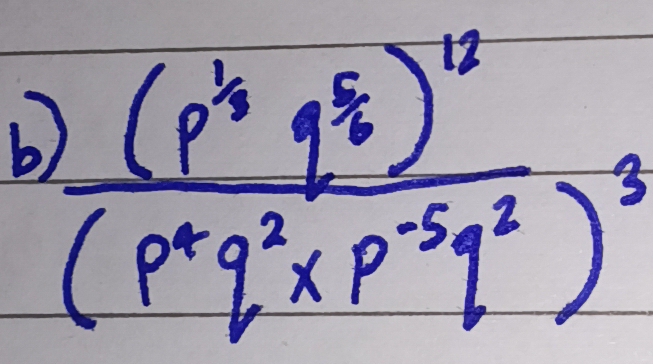 b) (p^{1/3} q^{5/6})^{12}
(p^4 q^2 × p^{-5} q^2)^3